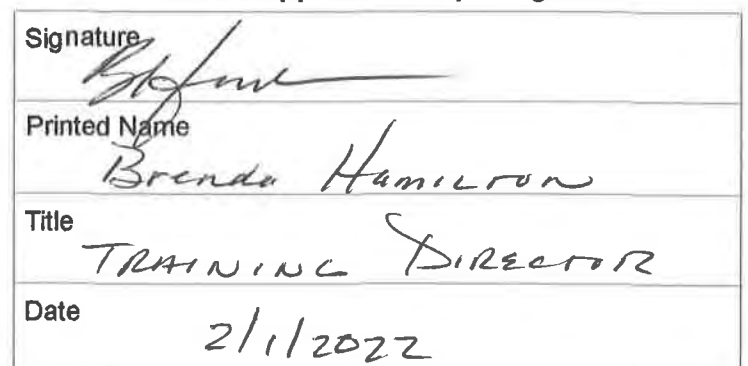 Signature
Printed Name
Brenda Hamilton
Title
TRAINING DIRECTOR
Date
2/1/2022